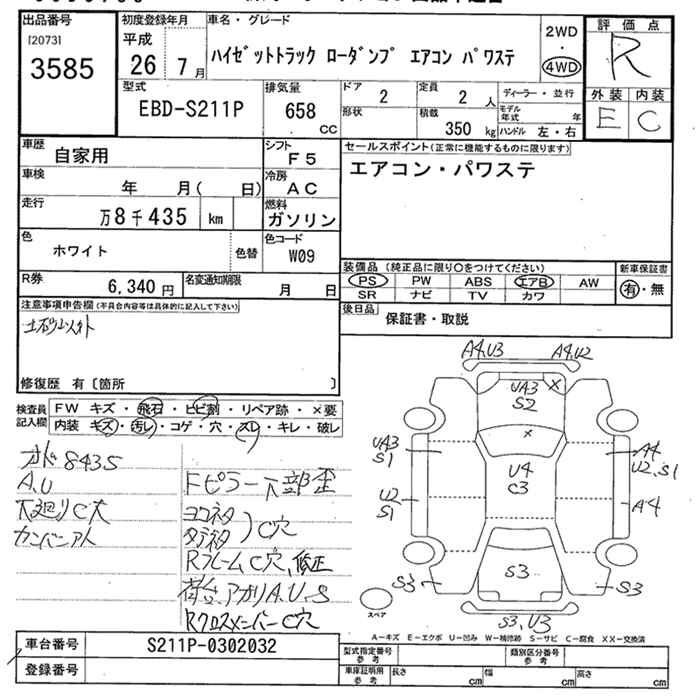 出品番号
[2073]
3585
初度登録年月
平成
26 7月
車名・グレード
ハイゼットトラック ローダンプ エアコン パワステ
2WD
・
4WD
評価点
R
外装 内装
E C
型式
EBD-S211P
排気量
658
cc
ドア
2
形状
定員
2 人
積載
350 kg
ディーラー・並行
モデル年式 年
ハンドル 左・右
車歴
自家用
シフト
F5
車検
年 月( 日)
冷房
AC
走行
万8千435 km
燃料
ガソリン
色
ホワイト
色替
色コード
W09
R券
6,340円
名変通知期限
月 日
セールスポイント(正常に機能するものに限ります)
エアコン・パワステ
装備品(純正品に限り○をつけてください)
PS PW ABS エアB AW
SR ナビ TV カワ
新車保証書
有・無
後日品
保証書・取説
注意事項申告欄(不具合内容等は具体的に記入して下さい)
土砂以外
修復歴 有〔箇所 〕
検査員記入欄
FW キズ・飛石・ヒビ割・リペア跡・×要
内装 キズ・汚レ・コゲ・穴・スレ・キレ・破レ
オド8435
A.U
下廻りC大
カンバンアト
Fピラー下部歪
ヨコネタ
タテネタ
C穴
RフレームC穴、修正
荷台、アオリA.U.S
RクロスメンバーC穴
A4,U3
A4,U2
UA3
S2
×
×
UA3
S1
U4
C3
A4
U2,S1
U2
S1
A4
S3
S3
S3
S3,U3
スペア
A-キズ E-エクボ U-凹み W-補修跡 S-サビ C-腐食 XX-交換済
車台番号
S211P-0302032
登録番号
型式指定番号
参考
類別区分番号
参考
車庫証明用
参考
長さ cm
幅 cm
高さ cm